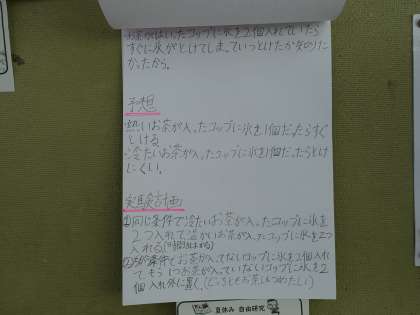 お茶がはいったコップに氷を2個入れていたら
すぐに氷がとけてしまっていつとけたか知りた
かったから。
予想
熱いお茶が入ったコップに氷を1個だったらすぐ
とける
冷たいお茶が入ったコップに氷を1個だったらとけ
にくい。
実験計画
①同じ条件で冷たいお茶が入ったコップに氷を
2つ入れて温かいお茶が入ったコップに氷を2つ
入れる
お茶が入ってないコップに氷を2個入れ
てもう1つお茶が入っていないコップに氷を2
個入れ外に置く。(どっちともお茶もつめたい)
夏休み 自由研究